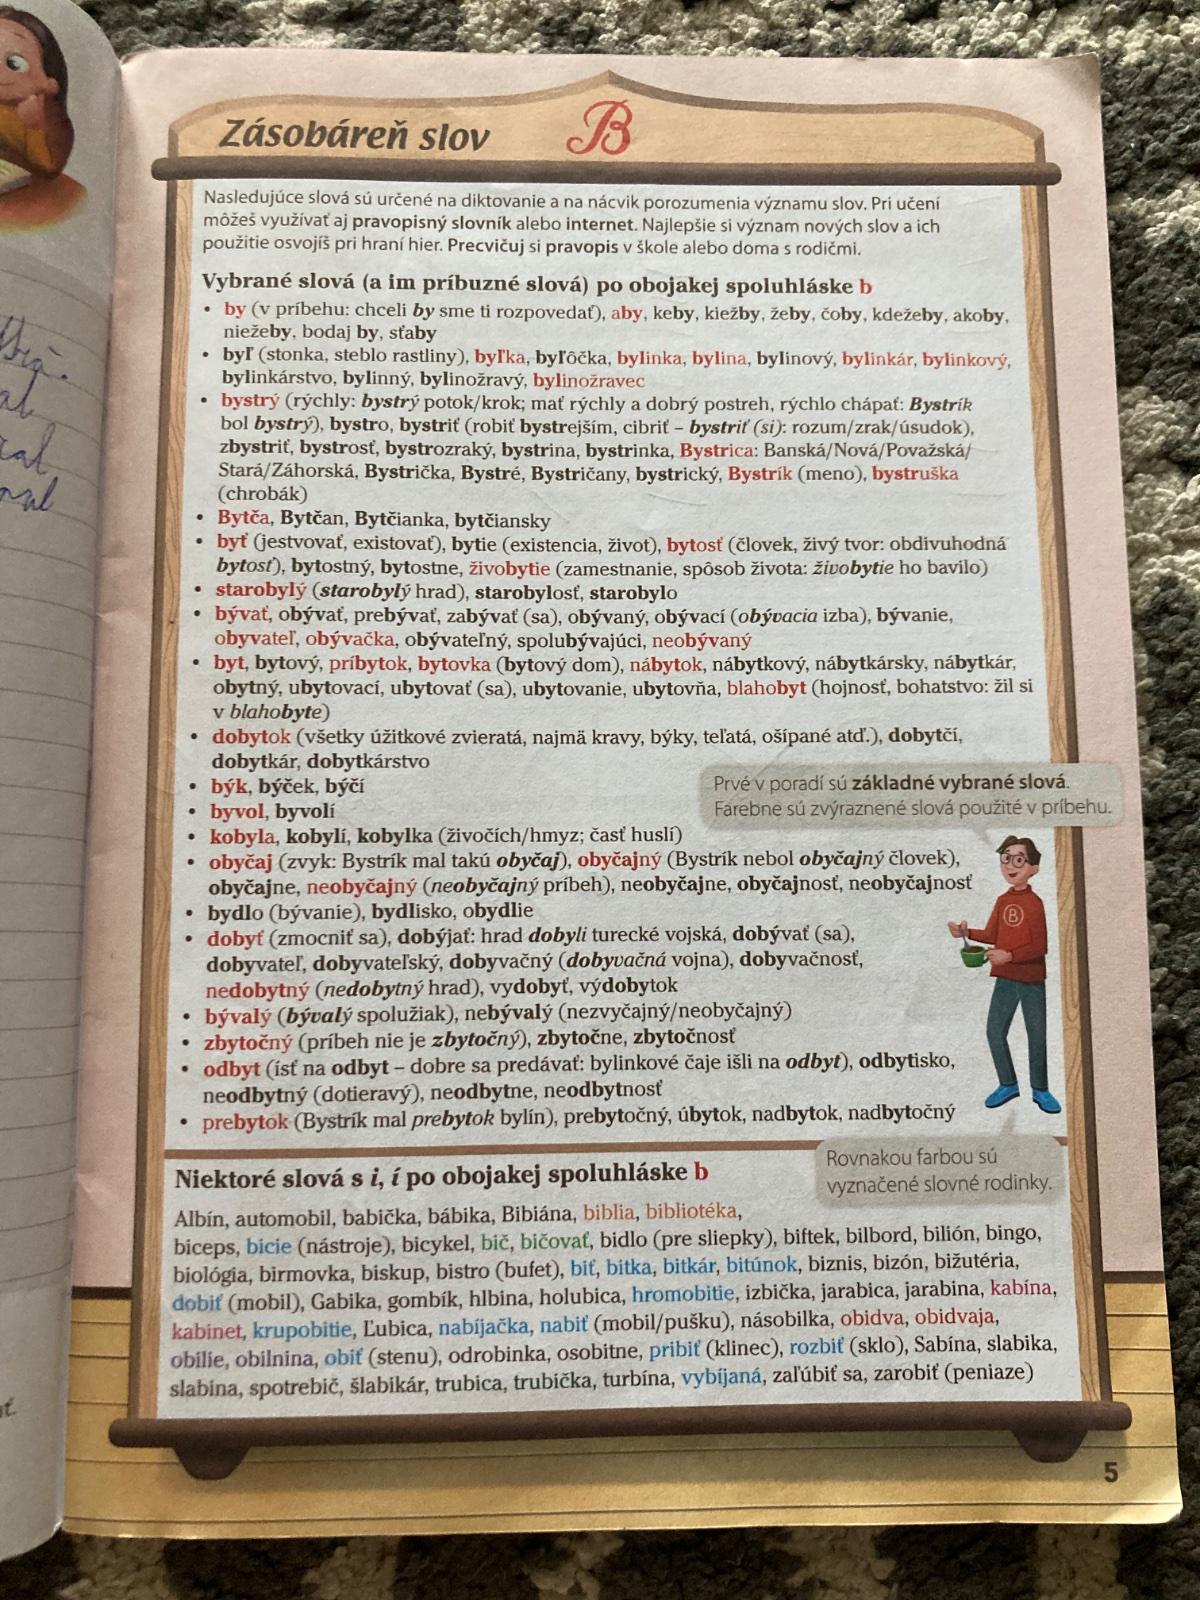 Zásobáreň slov B
Nasledujúce slová sú určené na diktovanie a na nácvik porozumenia významu slov. Pri učení
môžeš využívať aj pravopisný slovník alebo internet. Najlepšie si význam nových slov a ich
použitie osvojíš pri hraní hier. Precvičuj si pravopis v škole alebo doma s rodičmi.
Vybrané slová (a im príbuzné slová) po obojakej spoluhláske b
• by (v príbehu: chceli by sme ti rozpovedať), aby, keby, kiežby, žeby, čoby, kdežeby, akoby,
niežeby, bodaj by, sťaby
• byľ (stonka, steblo rastliny), byľka, byľôčka, bylinka, bylina, bylinový, bylinkár, bylinkový,
bylinkárstvo, bylinný, bylinožravý, bylinožravec
• bystrý (rýchly: bystrý potok/krok; mať rýchly a dobrý postreh, rýchlo chápať: Bystrík
bol bystrý), bystro, bystriť (robiť bystrejším, cibriť – bystriť (si): rozum/zrak/úsudok),
zbystriť, bystrosť, bystrozraký, bystrina, bystrinka, Bystrica: Banská/Nová/Považská/
Stará/Záhorská, Bystrička, Bystré, Bystričany, bystrický, Bystrík (meno), bystruška
(chrobák)
• Bytča, Bytčan, Bytčianka, bytčiansky
• byť (jestvovať, existovať), bytie (existencia, život), bytosť (človek, živý tvor: obdivuhodná
bytosť), bytostný, bytostne, živobytie (zamestnanie, spôsob života: živobytie ho bavilo)
• starobylý (starobylý hrad), starobylosť, starobylo
• bývať, obývať, prebývať, zabývať (sa), obývaný, obývací (obývacia izba), bývanie,
obyvateľ, obývačka, obývateľný, spolubývajúci, neobývaný
• byt, bytový, príbytok, bytovka (bytový dom), nábytok, nábytkový, nábytkársky, nábytkár,
obytný, ubytovací, ubytovať (sa), ubytovanie, ubytovňa, blahobyt (hojnosť, bohatstvo: žil si
v blahobyte)
• dobytok (všetky úžitkové zvieratá, najmä kravy, býky, teľatá, ošípané atď.), dobytčí,
dobytkár, dobytkárstvo
• býk, býček, býčí
• byvol, byvolí
• kobyla, kobylí, kobylka (živočích/hmyz; časť huslí)
Prvé v poradí sú základné vybrané slová.
Farebne sú zvýraznené slová použité v príbehu.
• obyčaj (zvyk: Bystrík mal takú obyčaj), obyčajný (Bystrík nebol obyčajný človek),
obyčajne, neobyčajný (neobyčajný príbeh), neobyčajne, obyčajnosť, neobyčajnosť
• bydlo (bývanie), bydlisko, obydlie
• dobyť (zmocniť sa), dobýjať: hrad dobyli turecké vojská, dobývať (sa),
dobyvateľ, dobyvateľský, dobyvačný (dobyvačná vojna), dobyvačnosť,
nedobytný (nedobytný hrad), vydobyť, výdobytok
• bývalý (bývalý spolužiak), nebývalý (nezvyčajný/neobyčajný)
• zbytočný (príbeh nie je zbytočný), zbytočne, zbytočnosť
• odbyt (ísť na odbyt – dobre sa predávať: bylinkové čaje išli na odbyt), odbytisko,
neodbytný (dotieravý), neodbytne, neodbytnosť
• prebytok (Bystrík mal prebytok bylín), prebytočný, úbytok, nadbytok, nadbytočný
B
Rovnakou farbou sú
vyznačené slovné rodinky.
Niektoré slová s i, í po obojakej spoluhláske b
Albín, automobil, babička, bábika, Bibiána, biblia, bibliotéka,
biceps, bicie (nástroje), bicykel, bič, bičovať, bidlo (pre sliepky), biftek, bilbord, bilión, bingo,
biológia, birmovka, biskup, bistro (bufet), biť, bitka, bitkár, bitúnok, biznis, bizón, bižutéria,
dobiť (mobil), Gabika, gombík, hlbina, holubica, hromobitie, izbička, jarabica, jarabina, kabína,
kabinet, krupobitie, Ľubica, nabíjačka, nabiť (mobil/pušku), násobilka, obidva, obidvaja,
obilie, obilnina, obiť (stenu), odrobinka, osobitne, pribiť (klinec), rozbiť (sklo), Sabína, slabika,
slabina, spotrebič, šlabikár, trubica, trubička, turbína, vybíjaná, zaľúbiť sa, zarobiť (peniaze)
5